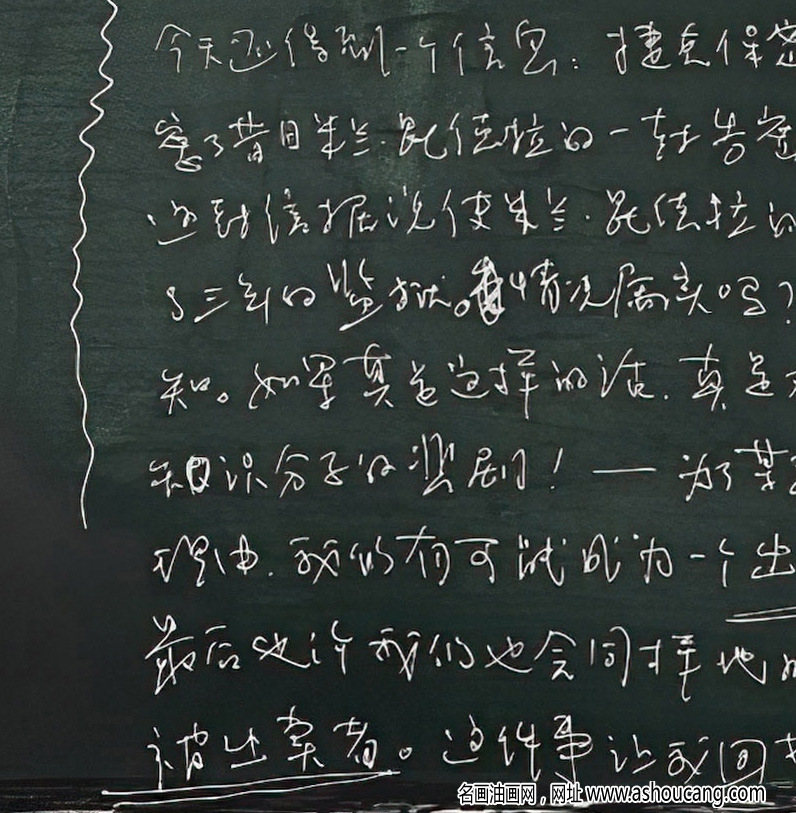 今天还得到一个信息：捷克保密
了昔日米兰·昆德拉的一封告密
这封信据说使米兰·昆德拉
了三年的监狱。情况属实吗？
知。如果真是这样的话，真是
知识分子的悲剧！——为了某
理由，我们有可能成为一个出
最后也许我们也会同样地
被出卖者。这件事让我回
名画油画网，网址 www.ashoucang.com